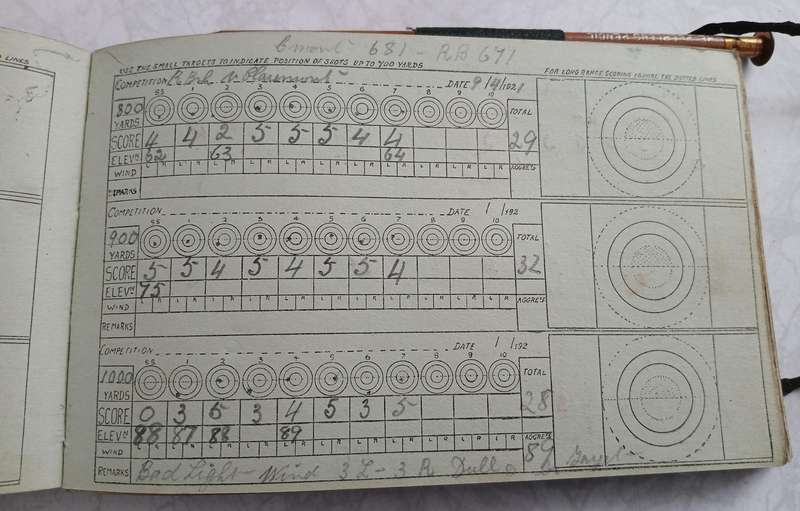 LINES
mont 681 - RB 671
USE THE SMALL TARGETS TO INDICATE POSITION OF SHOTS UP TO 700 YARDS
FOR LONG RANGE SCORING IGNORE THE DOTTED LINES
COMPETITION R.B. v Claremont DATE 9/4/1921
SS 1 2 3 4 5 6 7 8 9 10
800 YARDS TOTAL
SCORE 4 4 2 5 5 5 4 4 29
ELEVN 62 63 64
WIND L R L R L R L R L R L R L R L R L R L R L R AGGRETE
REMARKS
COMPETITION DATE / /192
SS 1 2 3 4 5 6 7 8 9 10
900 YARDS TOTAL
SCORE 5 5 4 5 4 5 5 4 32
ELEVN 75
WIND L R L R L R L R L R L R L R L R L R L R L R AGGRETE
REMARKS
COMPETITION DATE / /192
SS 1 2 3 4 5 6 7 8 9 10
1000 YARDS TOTAL
SCORE 0 3 5 3 4 5 3 5 28
ELEVN 88 87 88 89
WIND L R L R L R L R L R L R L R L R L R L R L R AGGRETE 89
REMARKS Bad Light - Wind 3 L - 3 R Dull